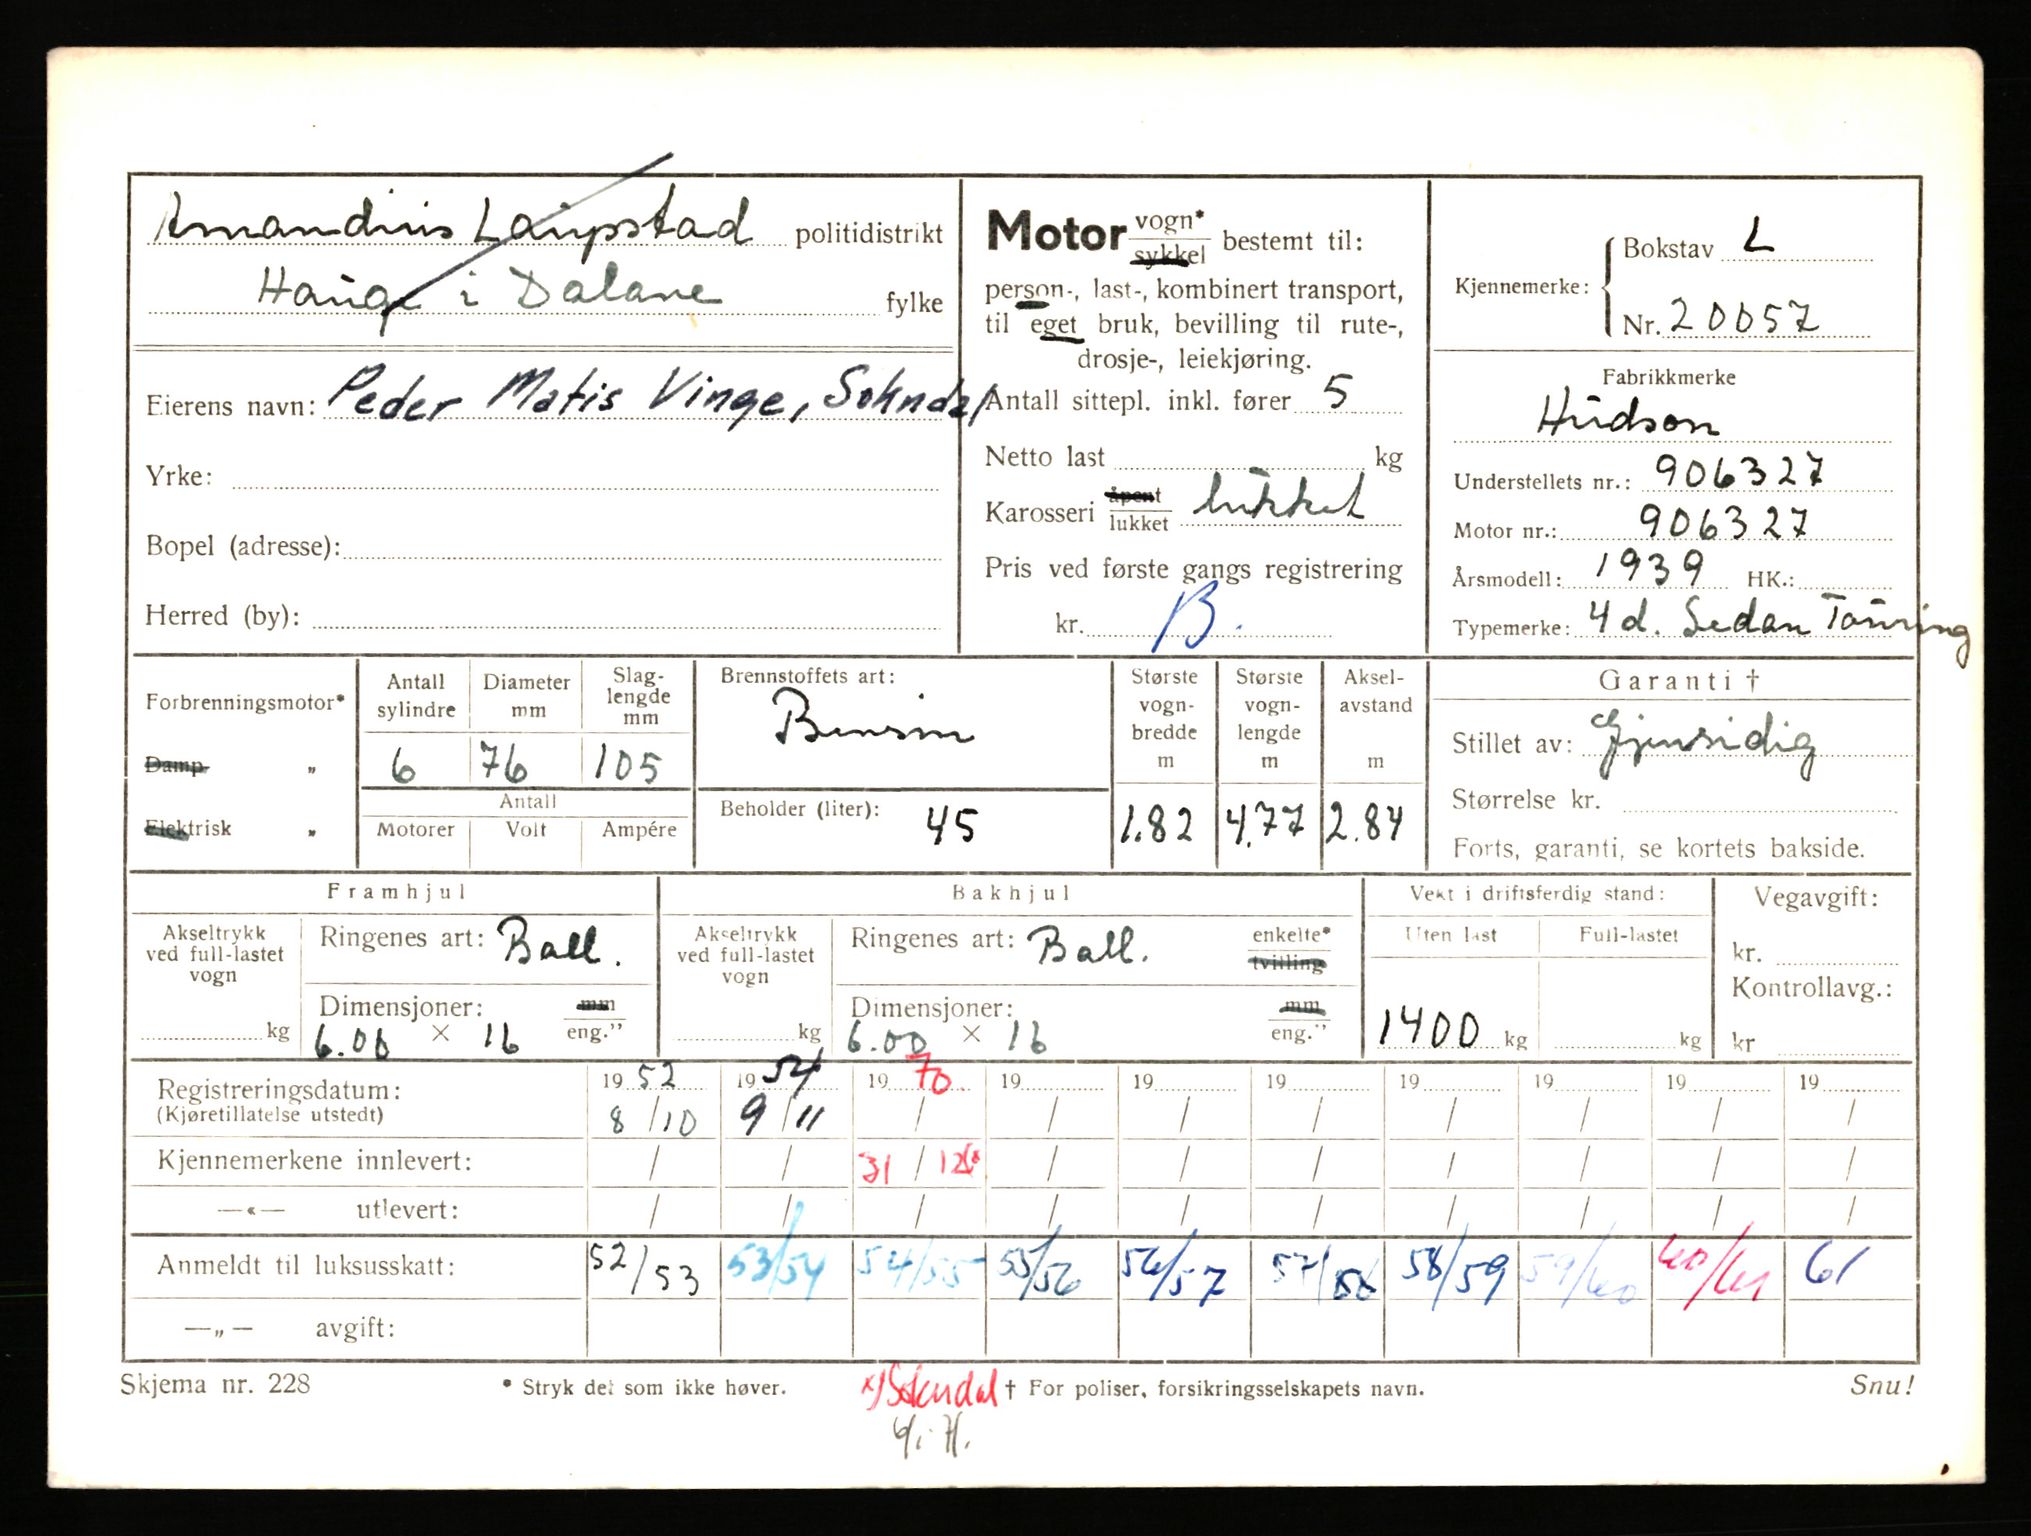 Amandius Laupstad politidistrikt
Hauge i Dalane fylke
Eierens navn: Peder Matis Vinge, Sokndal
Yrke:
Bopel (adresse):
Herred (by):
Motor vogn* sykkel bestemt til:
person-, last-, kombinert transport,
til eget bruk, bevilling til rute-,
drosje-, leiekjøring.
Antall sittepl. inkl. fører 5
Netto last kg
Karosseri åpent lukket lukket
Pris ved første gangs registrering
kr. B.
Kjennemerke: Bokstav L
Nr. 20057
Fabrikkmerke
Hudson
Understellets nr.: 906327
Motor nr.: 906327
Årsmodell: 1939 HK.:
Typemerke: 4 d. Sedan Touring
Forbrenningsmotor*
Damp „
Elektrisk „
Antall sylindre 6
Diameter mm 76
Slag-lengde mm 105
Antall
Motorer Volt Ampére
Brennstoffets art:
Bensin
Beholder (liter): 45
Største vogn-bredde m 1.82
Største vogn-lengde m 4.77
Aksel-avstand m 2.84
Garanti †
Stillet av: Gjensidig
Størrelse kr.
Forts, garanti, se kortets bakside.
Framhjul
Akseltrykk ved full-lastet vogn kg
Ringenes art: Ball.
Dimensjoner: mm eng.”
6.00 × 16
Bakhjul
Akseltrykk ved full-lastet vogn kg
Ringenes art: Ball. enkelte* tvilling
Dimensjoner: mm eng.”
6.00 × 16
Vekt i driftsferdig stand:
Uten last Full-lastet
1400 kg kg
Vegavgift:
kr.
Kontrollavg.:
kr
Registreringsdatum: 19 52 19 54 19 70 19 19 19 19 19 19 19
(Kjøretillatelse utstedt) 8/10 9/11 / / / / / / / /
Kjennemerkene innlevert: / / 31/12 x / / / / / / /
—«— utlevert: / / / / / / / / / /
Anmeldt til luksusskatt: 52/53 53/54 54/55 55/56 56/57 57/58 58/59 59/60 60/61 61
—„— avgift:
Skjema nr. 228 * Stryk det som ikke høver. x) Sokndal † For poliser, forsikringsselskapets navn. Snu!